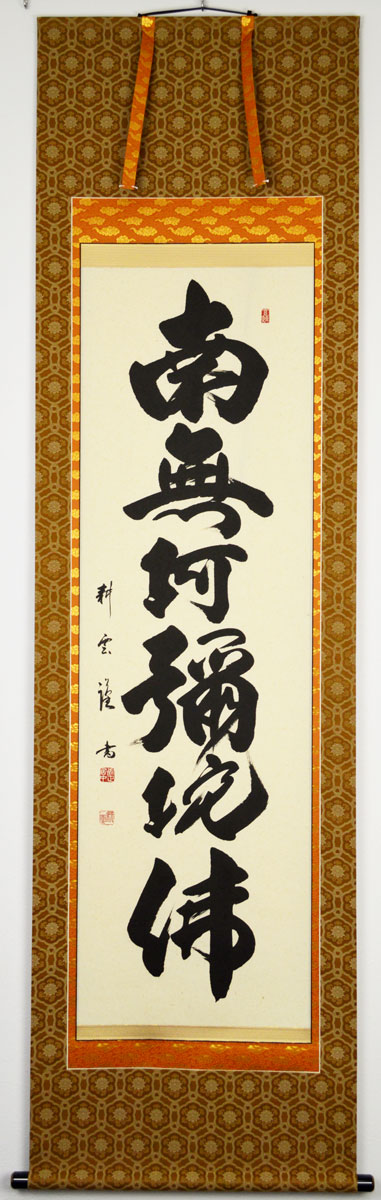 南無阿彌陀佛
耕雲謹書